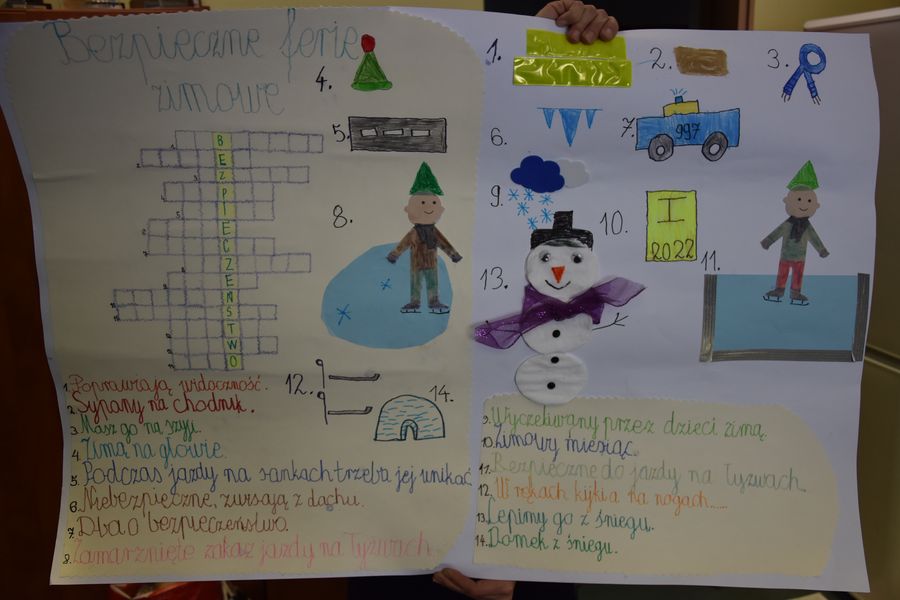 Bezpieczne ferie
zimowe
BEZPIECZEŃSTWO
1. Poprawiają widoczność.
2. Sypany na chodnik.
3. Nasz go na szyji.
4. Zimą na głowie.
5. Podczas jazdy na sankach trzeba jej unikać
6. Niebezpieczne, zwisają z dachu.
7. Dba o bezpieczeństwo.
8. Zamarznięte zakaz jazdy na łyżwach.
4.
5.
8.
12.
14.
1.
2.
3.
6.
7.
997
9.
10.
I
2022
11.
13.
9. Wyczekiwany przez dzieci zimą.
10. Zimowy miesiąc.
11. Bezpieczne do jazdy na łyżwach.
12. W rękach kijki a na nogach......
13. Lepimy go z śniegu.
14. Domek z śniegu.